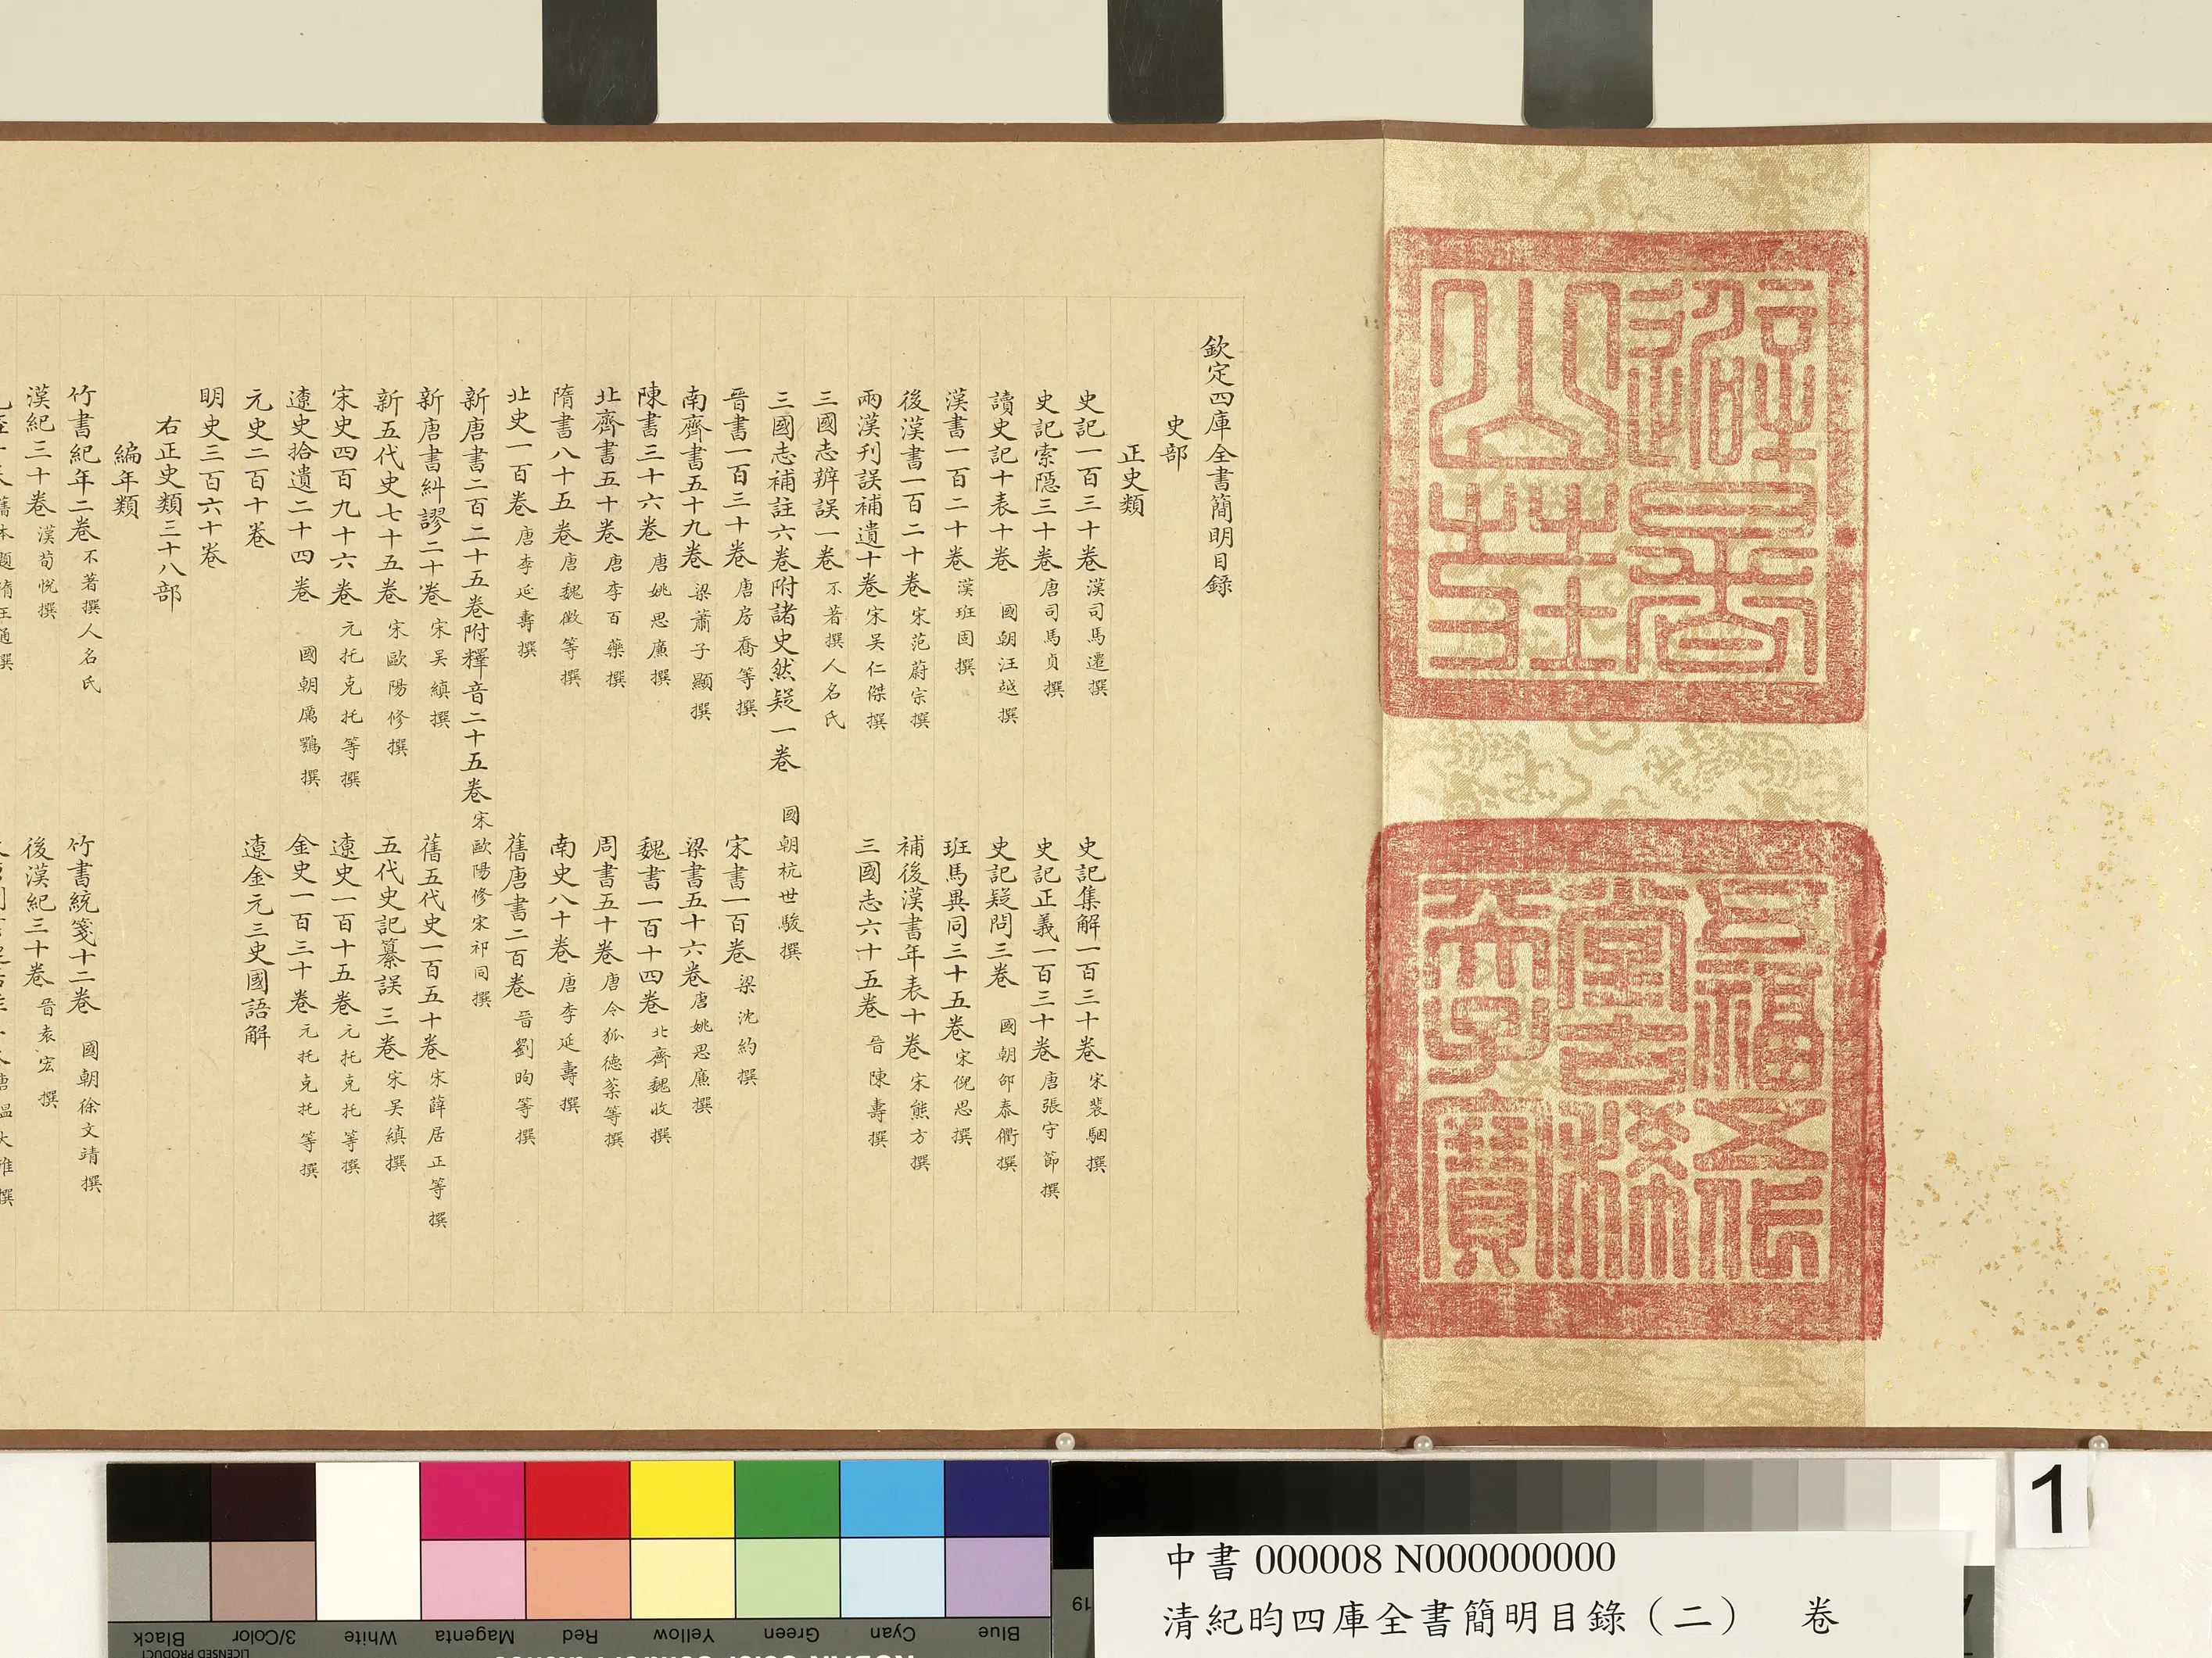 避暑山莊
五福五代堂古稀天子寶
欽定四庫全書簡明目錄
史部
正史類
史記一百三十卷 漢司馬遷撰 史記集解一百三十卷 宋裴駰撰
史記索隱三十卷 唐司馬貞撰 史記正義一百三十卷 唐張守節撰
讀史記十表十卷 國朝汪越撰 史記疑問三卷 國朝邵泰衢撰
漢書一百二十卷 漢班固撰 班馬異同三十五卷 宋倪思撰
後漢書一百二十卷 宋范蔚宗撰 補後漢書年表十卷 宋熊方撰
兩漢刊誤補遺十卷 宋吴仁傑撰 三國志六十五卷 晉陳壽撰
三國志辨誤一卷 不著撰人名氏
三國志補註六卷附諸史然疑一卷 國朝杭世駿撰
晉書一百三十卷 唐房喬等撰 宋書一百卷 梁沈約撰
南齊書五十九卷 梁蕭子顯撰 梁書五十六卷 唐姚思廉撰
陳書三十六卷 唐姚思廉撰 魏書一百十四卷 北齊魏收撰
北齊書五十卷 唐李百藥撰 周書五十卷 唐令狐德棻等撰
隋書八十五卷 唐魏徵等撰 南史八十卷 唐李延壽撰
北史一百卷 唐李延壽撰 舊唐書二百卷 晉劉昫等撰
新唐書二百二十五卷附釋音二十五卷 宋歐陽修宋祁同撰
新唐書糾謬二十卷 宋吴縝撰 舊五代史一百五十卷 宋薛居正等撰
新五代史七十五卷 宋歐陽修撰 五代史記纂誤三卷 宋吴縝撰
宋史四百九十六卷 元托克托等撰 遼史一百十五卷 元托克托等撰
遼史拾遺二十四卷 國朝厲鶚撰 金史一百三十卷 元托克托等撰
元史二百十卷 遼金元三史國語解
明史三百六十卷
右正史類三十八部
編年類
竹書紀年二卷 不著撰人名氏 竹書統箋十二卷 國朝徐文靖撰
漢紀三十卷 漢荀悅撰 後漢紀三十卷 晉袁宏撰
1
中書000008 N000000000
清紀昀四庫全書簡明目錄（二） 卷
Blue Cyan Green Yellow Red Magenta White 3/Color Black
LICENSED PRODUCT
19